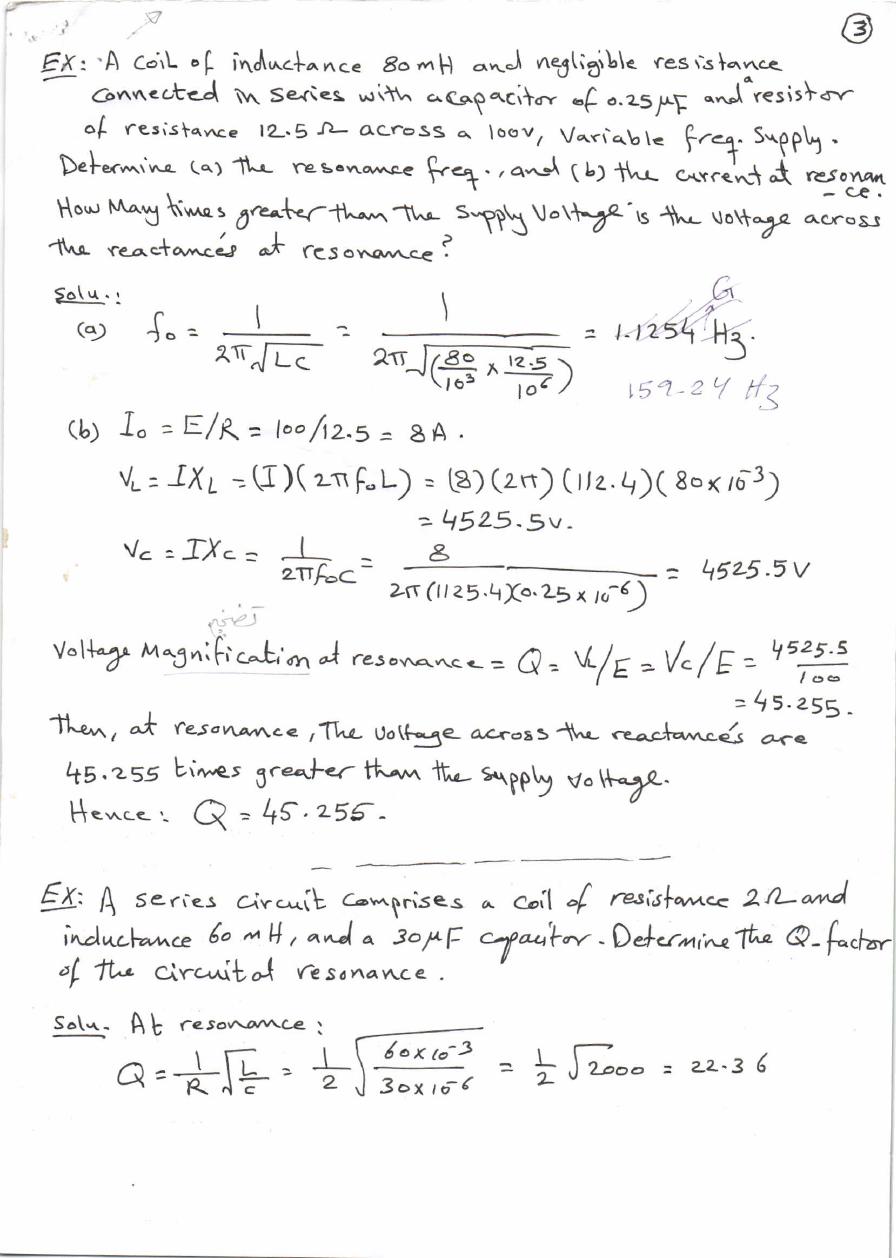 ③
EX: A coil of inductance 80 mH and negligible resistance
connected in series with a capacitor of 0.25 μF and a resistor
of resistance 12.5 Ω across a 100V, Variable freq. Supply.
Determine (a) the resonance freq., and (b) the current at resonan
-ce.
How Many times greater than the Supply Voltage is the voltage across
the reactance's at resonance?
Solu.:
(a) f₀ = 1/(2π√LC) = 1/(2π√(80/10³ × 12.5/10⁶)) = 1.1254 Hz.
159.24 Hz
(b) I₀ = E/R = 100/12.5 = 8A.
V_L = IX_L = (I)(2πf₀L) = (8)(2π)(112.4)(80×10⁻³)
= 4525.5 v.
Vc = IXc = 1/(2πf₀C) = 8/(2π(1125.4)(0.25×10⁻⁶)) = 4525.5 V
Voltage Magnification at resonance = Q = V_L/E = Vc/E = 4525.5/100
= 45.255.
Then, at resonance, The voltage across the reactance's are
45.255 times greater than the supply voltage.
Hence: Q = 45.255.
EX: A series circuit comprises a coil of resistance 2Ω and
inductance 60 mH, and a 30μF capacitor. Determine The Q-factor
of the circuit at resonance.
Solu. At resonance:
Q = 1/R √(L/C) = 1/2 √(60×10⁻³/30×10⁻⁶) = 1/2 √2000 = 22.36